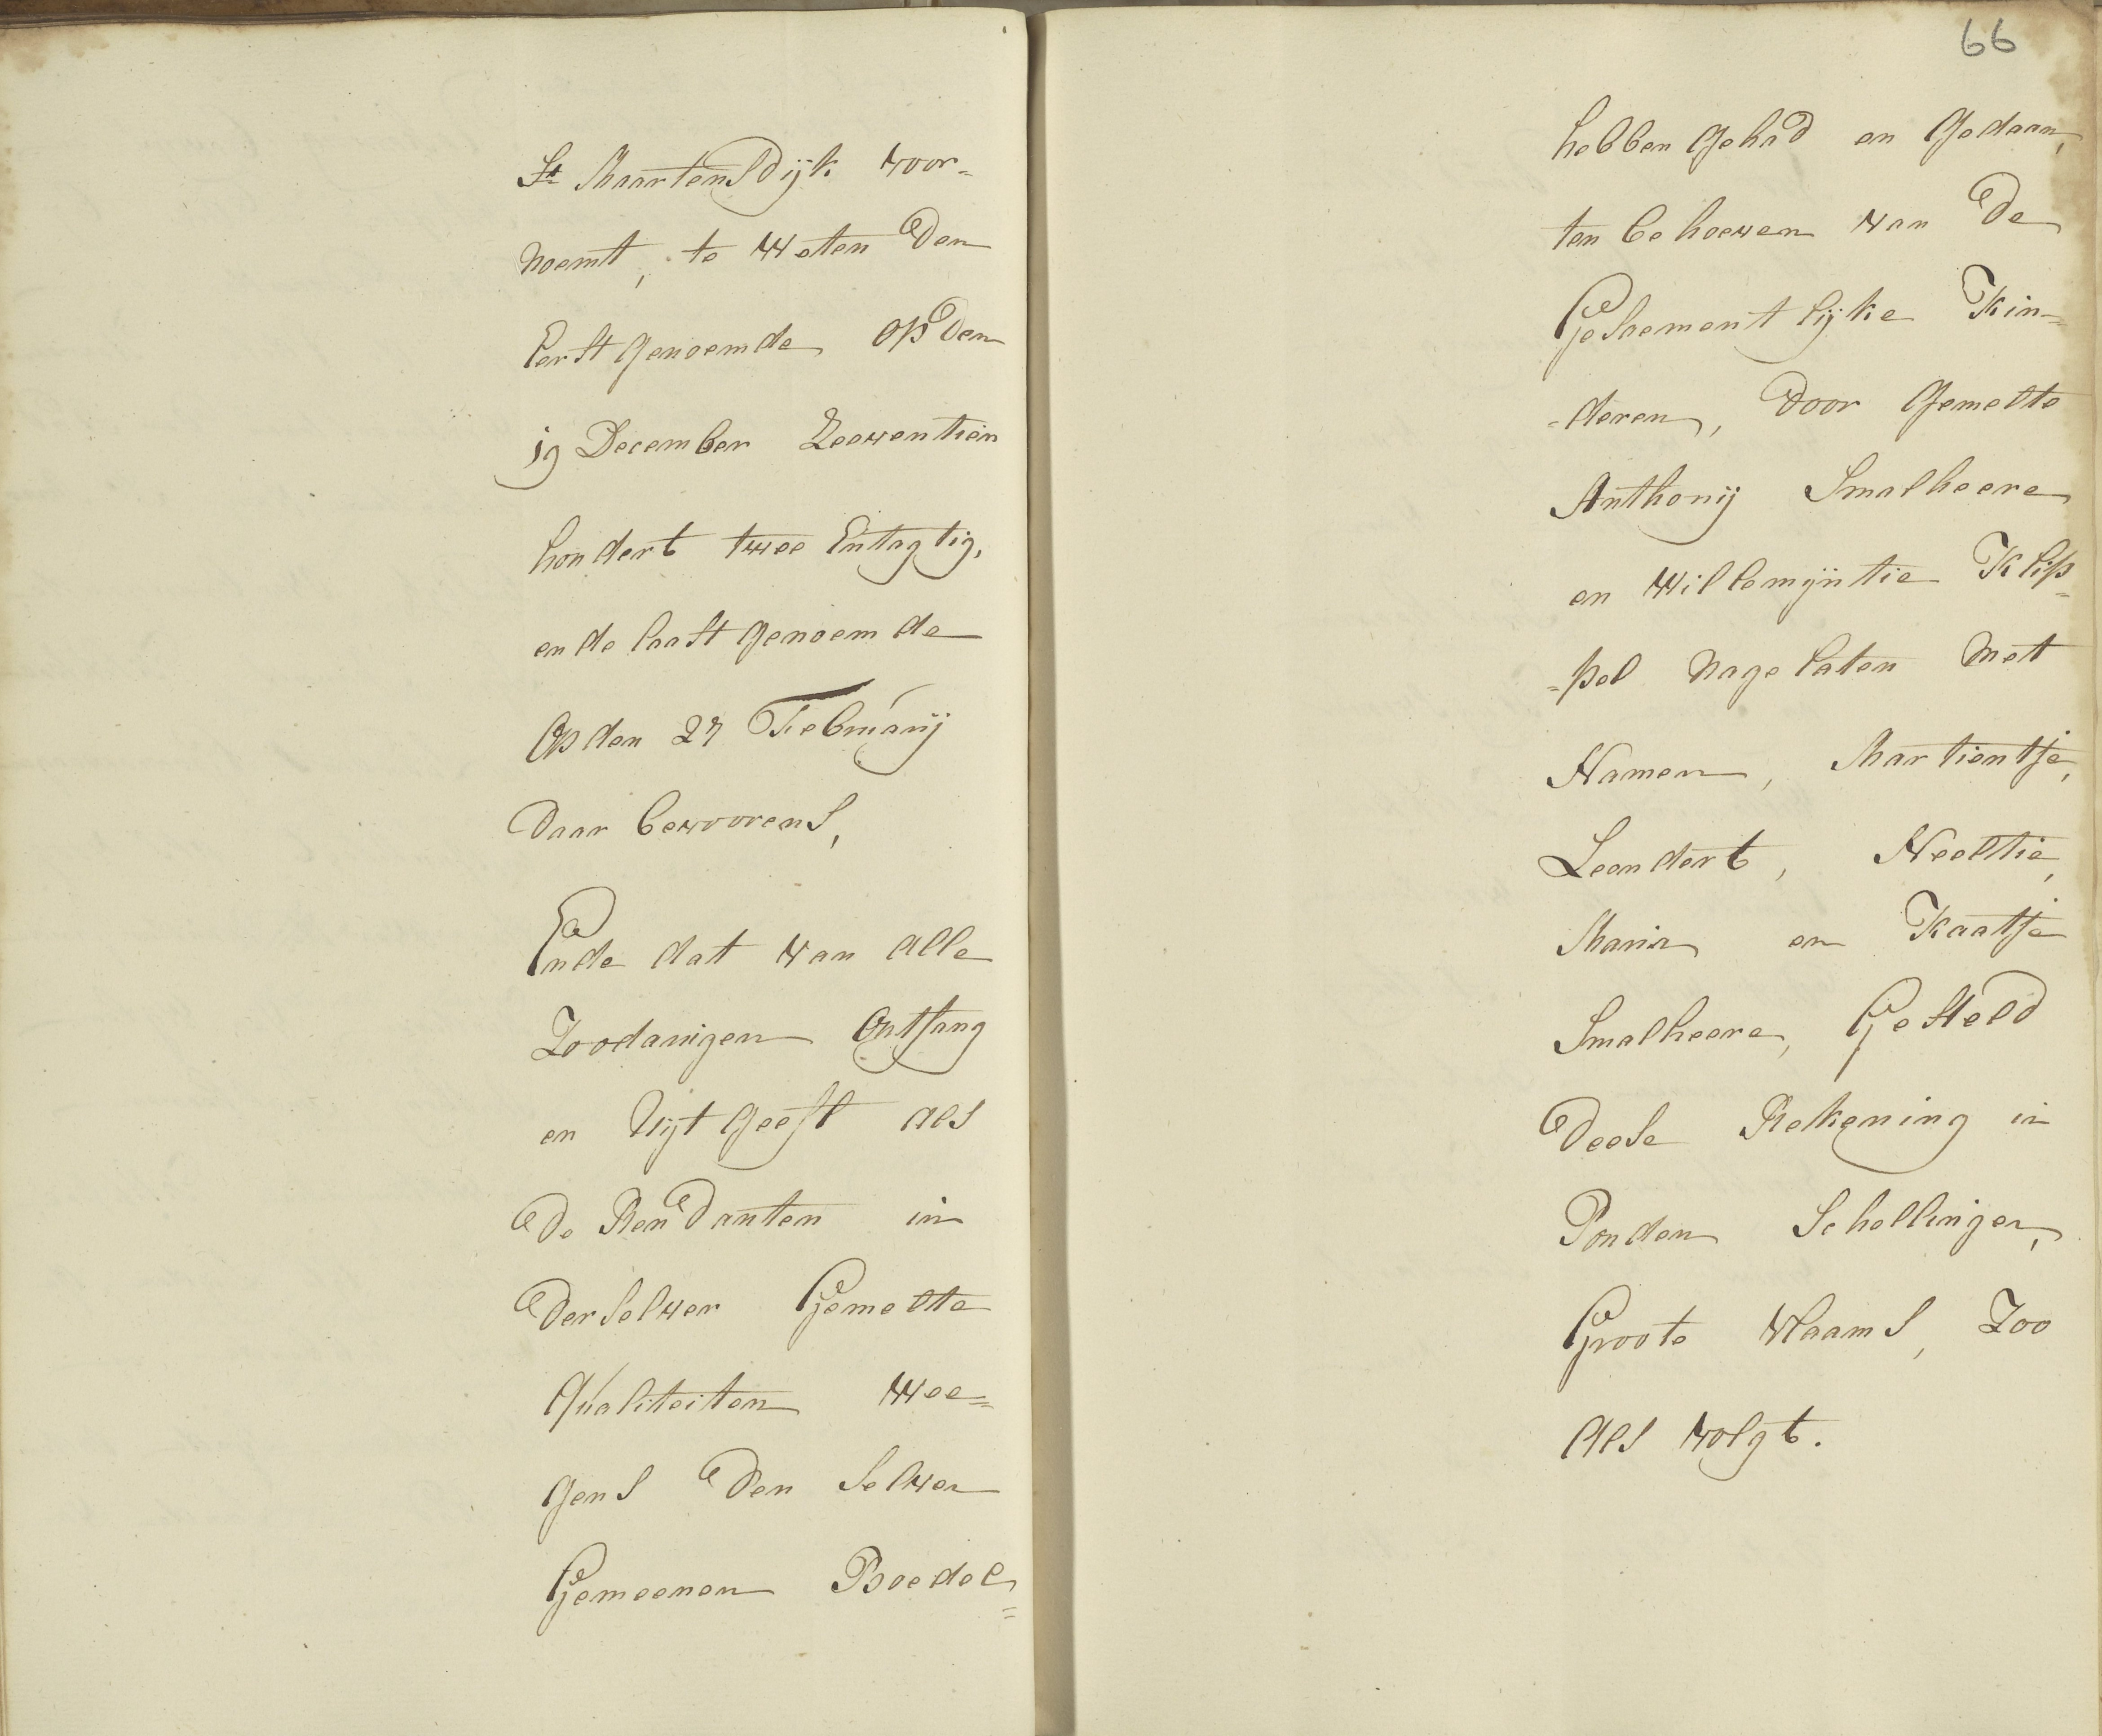 St Maartensdijk voor=
noemt, te weten den
Eerstgenoemde op den
19 December Zeeventien
hondert twee Entagtig,
en de laast genoemde
Op den 27 Februarij
daar bevoorens,
Ende dat van alle
Zoodanigen Ontfang
en Uijtgeeft als
de Rendanten in
derselver Gemelte
Qualiteiten wee=
gens den selven
Gemeenen Boedel
=
66
hebben gehad en Gedaan,
ten behoeven van de
Gesaementlijke Kin=
=deren, door Gemelte
Anthonij Smalheere
en Willemijntie Klip=
=pel Nagelaten met
Namen, Martientje,
Leendert, Neeltie,
Maria en Kaatje
Smalheere, Gesteld
deese Rekening in
Ponden Schellingen,
Groote Vlaams, Zoo
Als volgt.